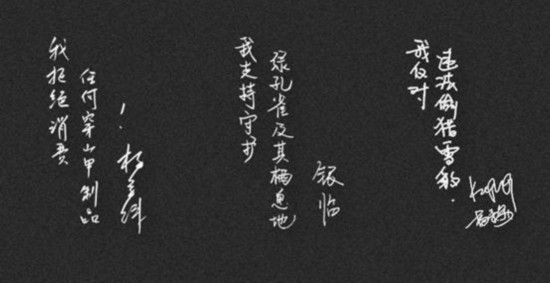 我拒绝消费
任何穿山甲制品
！
我支持守护
绿孔雀及其栖息地
银临
我反对
违法偷猎雪豹.